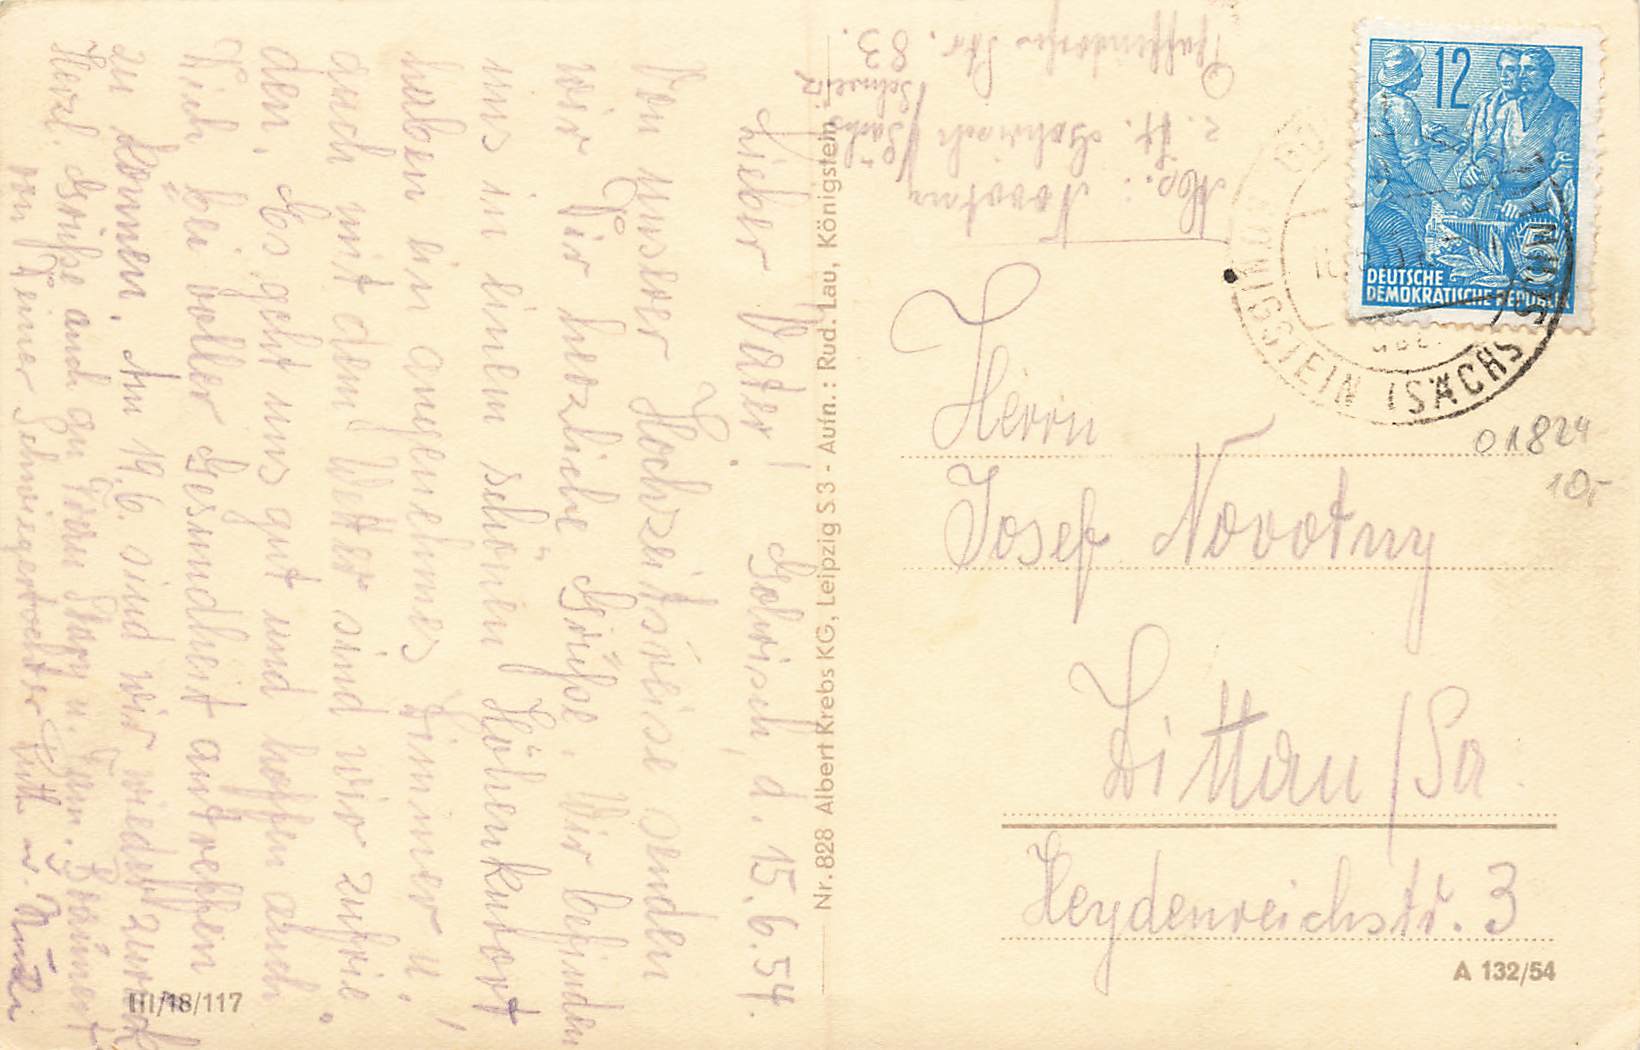 Lieber Vater! Gohrisch, d. 15.6.54.
Von unserer Hochzeitsreise senden
wir Dir herzliche Grüße. Wir befinden
uns in einem schönen Höhenkurort,
haben ein angenehmes Zimmer u.
auch mit dem Wetter sind wir zufrie-
den. Es geht uns gut und hoffen auch
Dich bei voller Gesundheit antreffen
zu können. Am 19.6. sind wir wieder zurück
Herzl. Grüße auch an Frau u. Fam.
von Deiner Schwiegertochter Ruth u.
Abs.: Novotny
z. Zt. Gohrisch /Sächs.
Schweiz
Pfaffendorfer Str. 83.
Nr. 828 Albert Krebs KG, Leipzig S 3 - Aufn.: Rud. Lau, Königstein
12
DEUTSCHE
DEMOKRATISCHE REPUBLIK
KÖNIGSTEIN (SÄCHS
Herrn
Josef Novotny
Zittau/Sa
Heydenreichstr. 3
01824
10,-
III/18/117
A 132/54